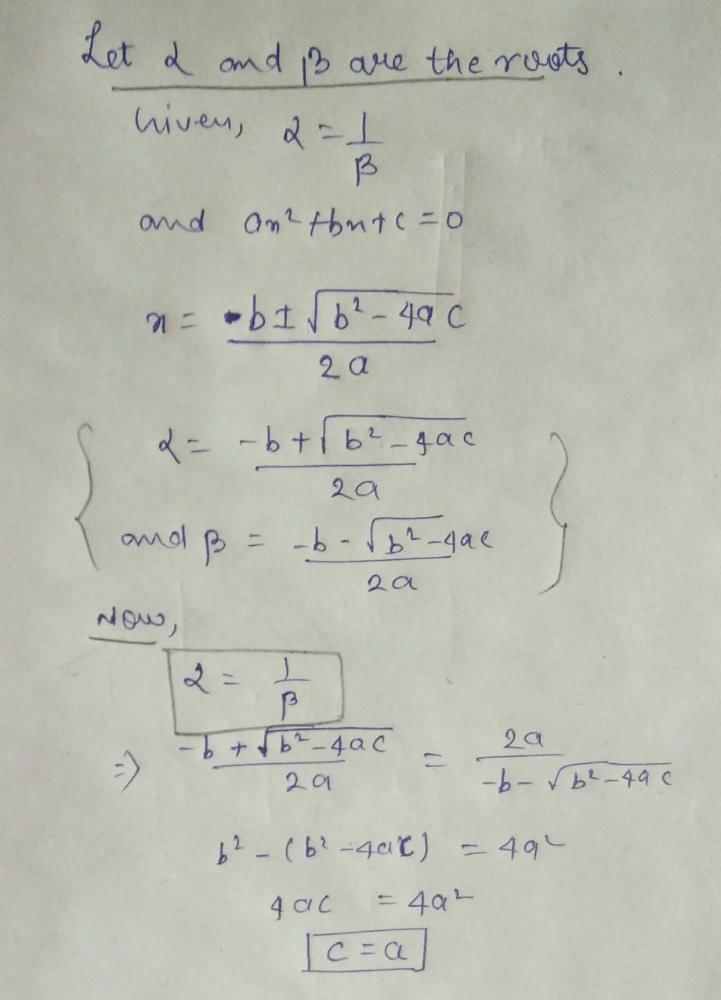 Let α and β are the roots.
Given, α = 1/β
and ax² + bx + c = 0
x = -b ± √(b² - 4ac) / 2a
α = -b + √(b² - 4ac) / 2a
and β = -b - √(b² - 4ac) / 2a
Now,
α = 1/β
⇒ -b + √(b² - 4ac) / 2a = 2a / -b - √(b² - 4ac)
b² - (b² - 4ac) = 4a²
4ac = 4a²
c = a